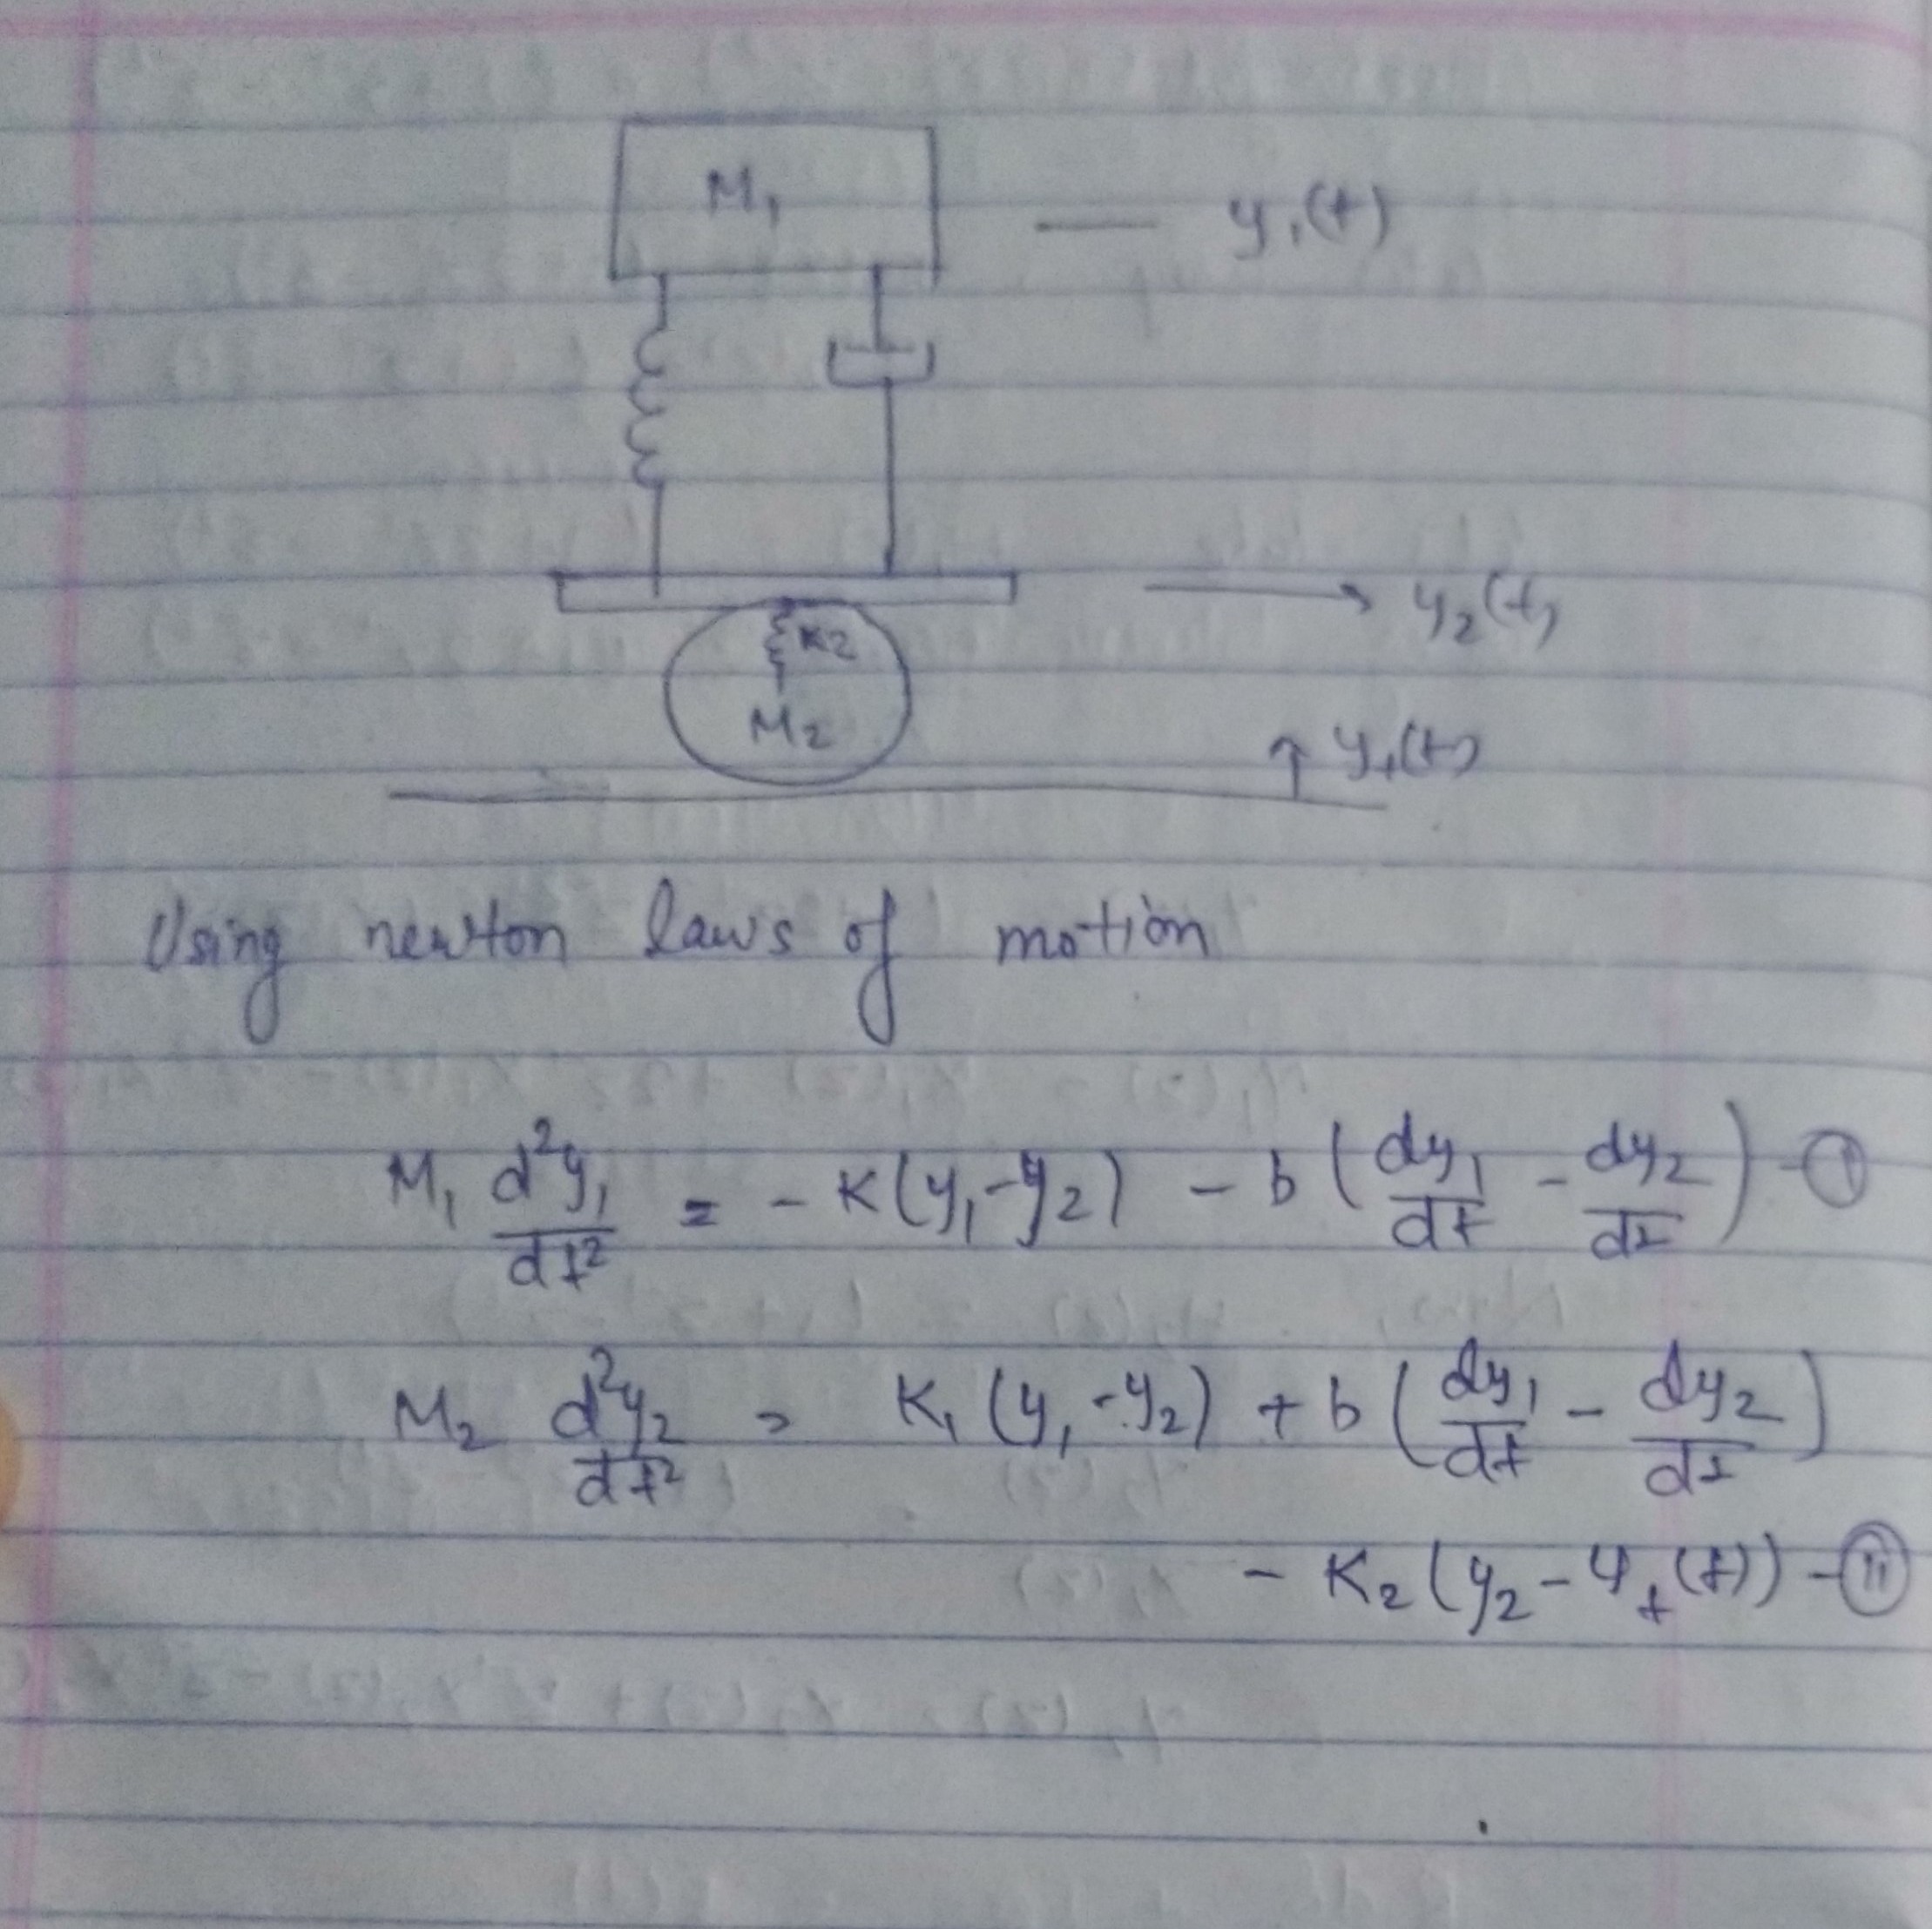 M₁ y₁(t)
y₂(t)
K2
M₂
y₊(t)
Using newton laws of motion
M₁ d²y₁/dt² = -K(y₁-y₂) - b(dy₁/dt - dy₂/dt) - ①
M₂ d²y₂/dt² = K₁(y₁-y₂) + b(dy₁/dt - dy₂/dt)
- K₂(y₂-y₊(t)) - ⑪